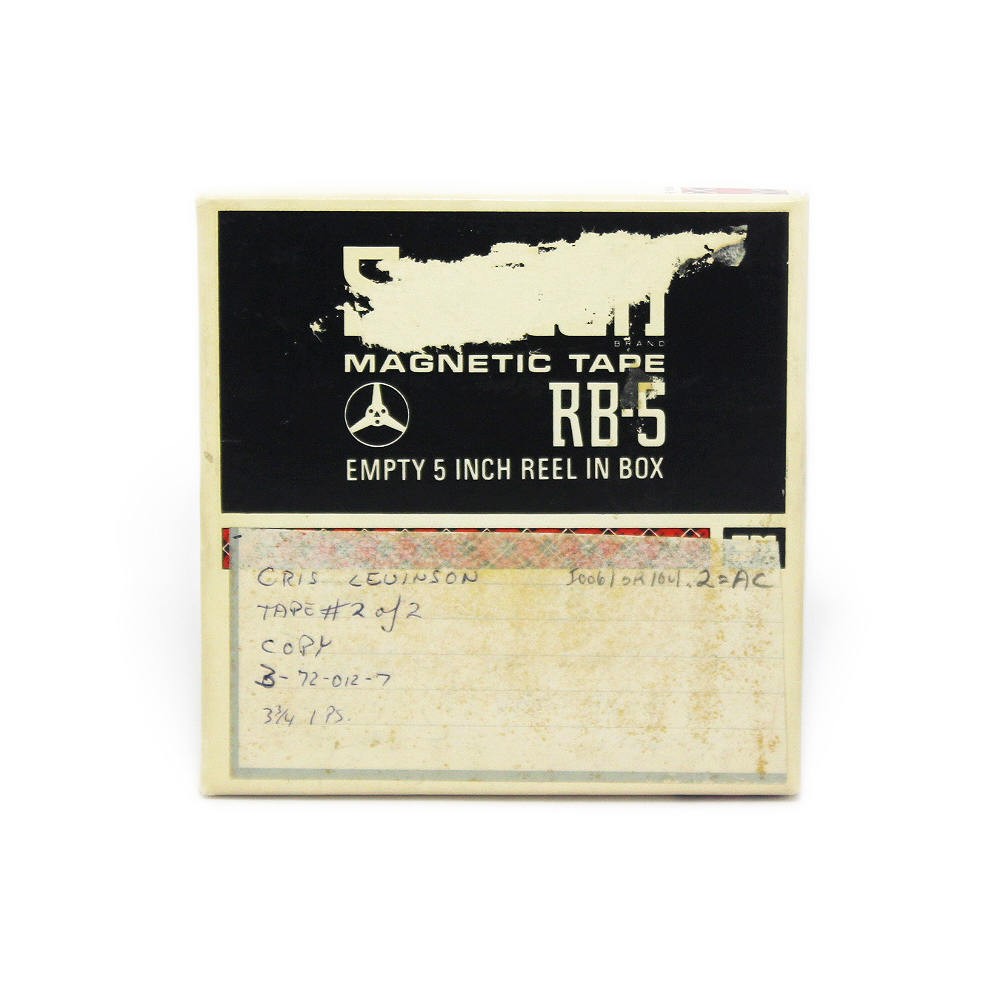 BRAND
MAGNETIC TAPE
RB-5
EMPTY 5 INCH REEL IN BOX
CRIS LEVINSON
TAPE #2 of 2
COPY
B-72-012-7
3¾ IPS.